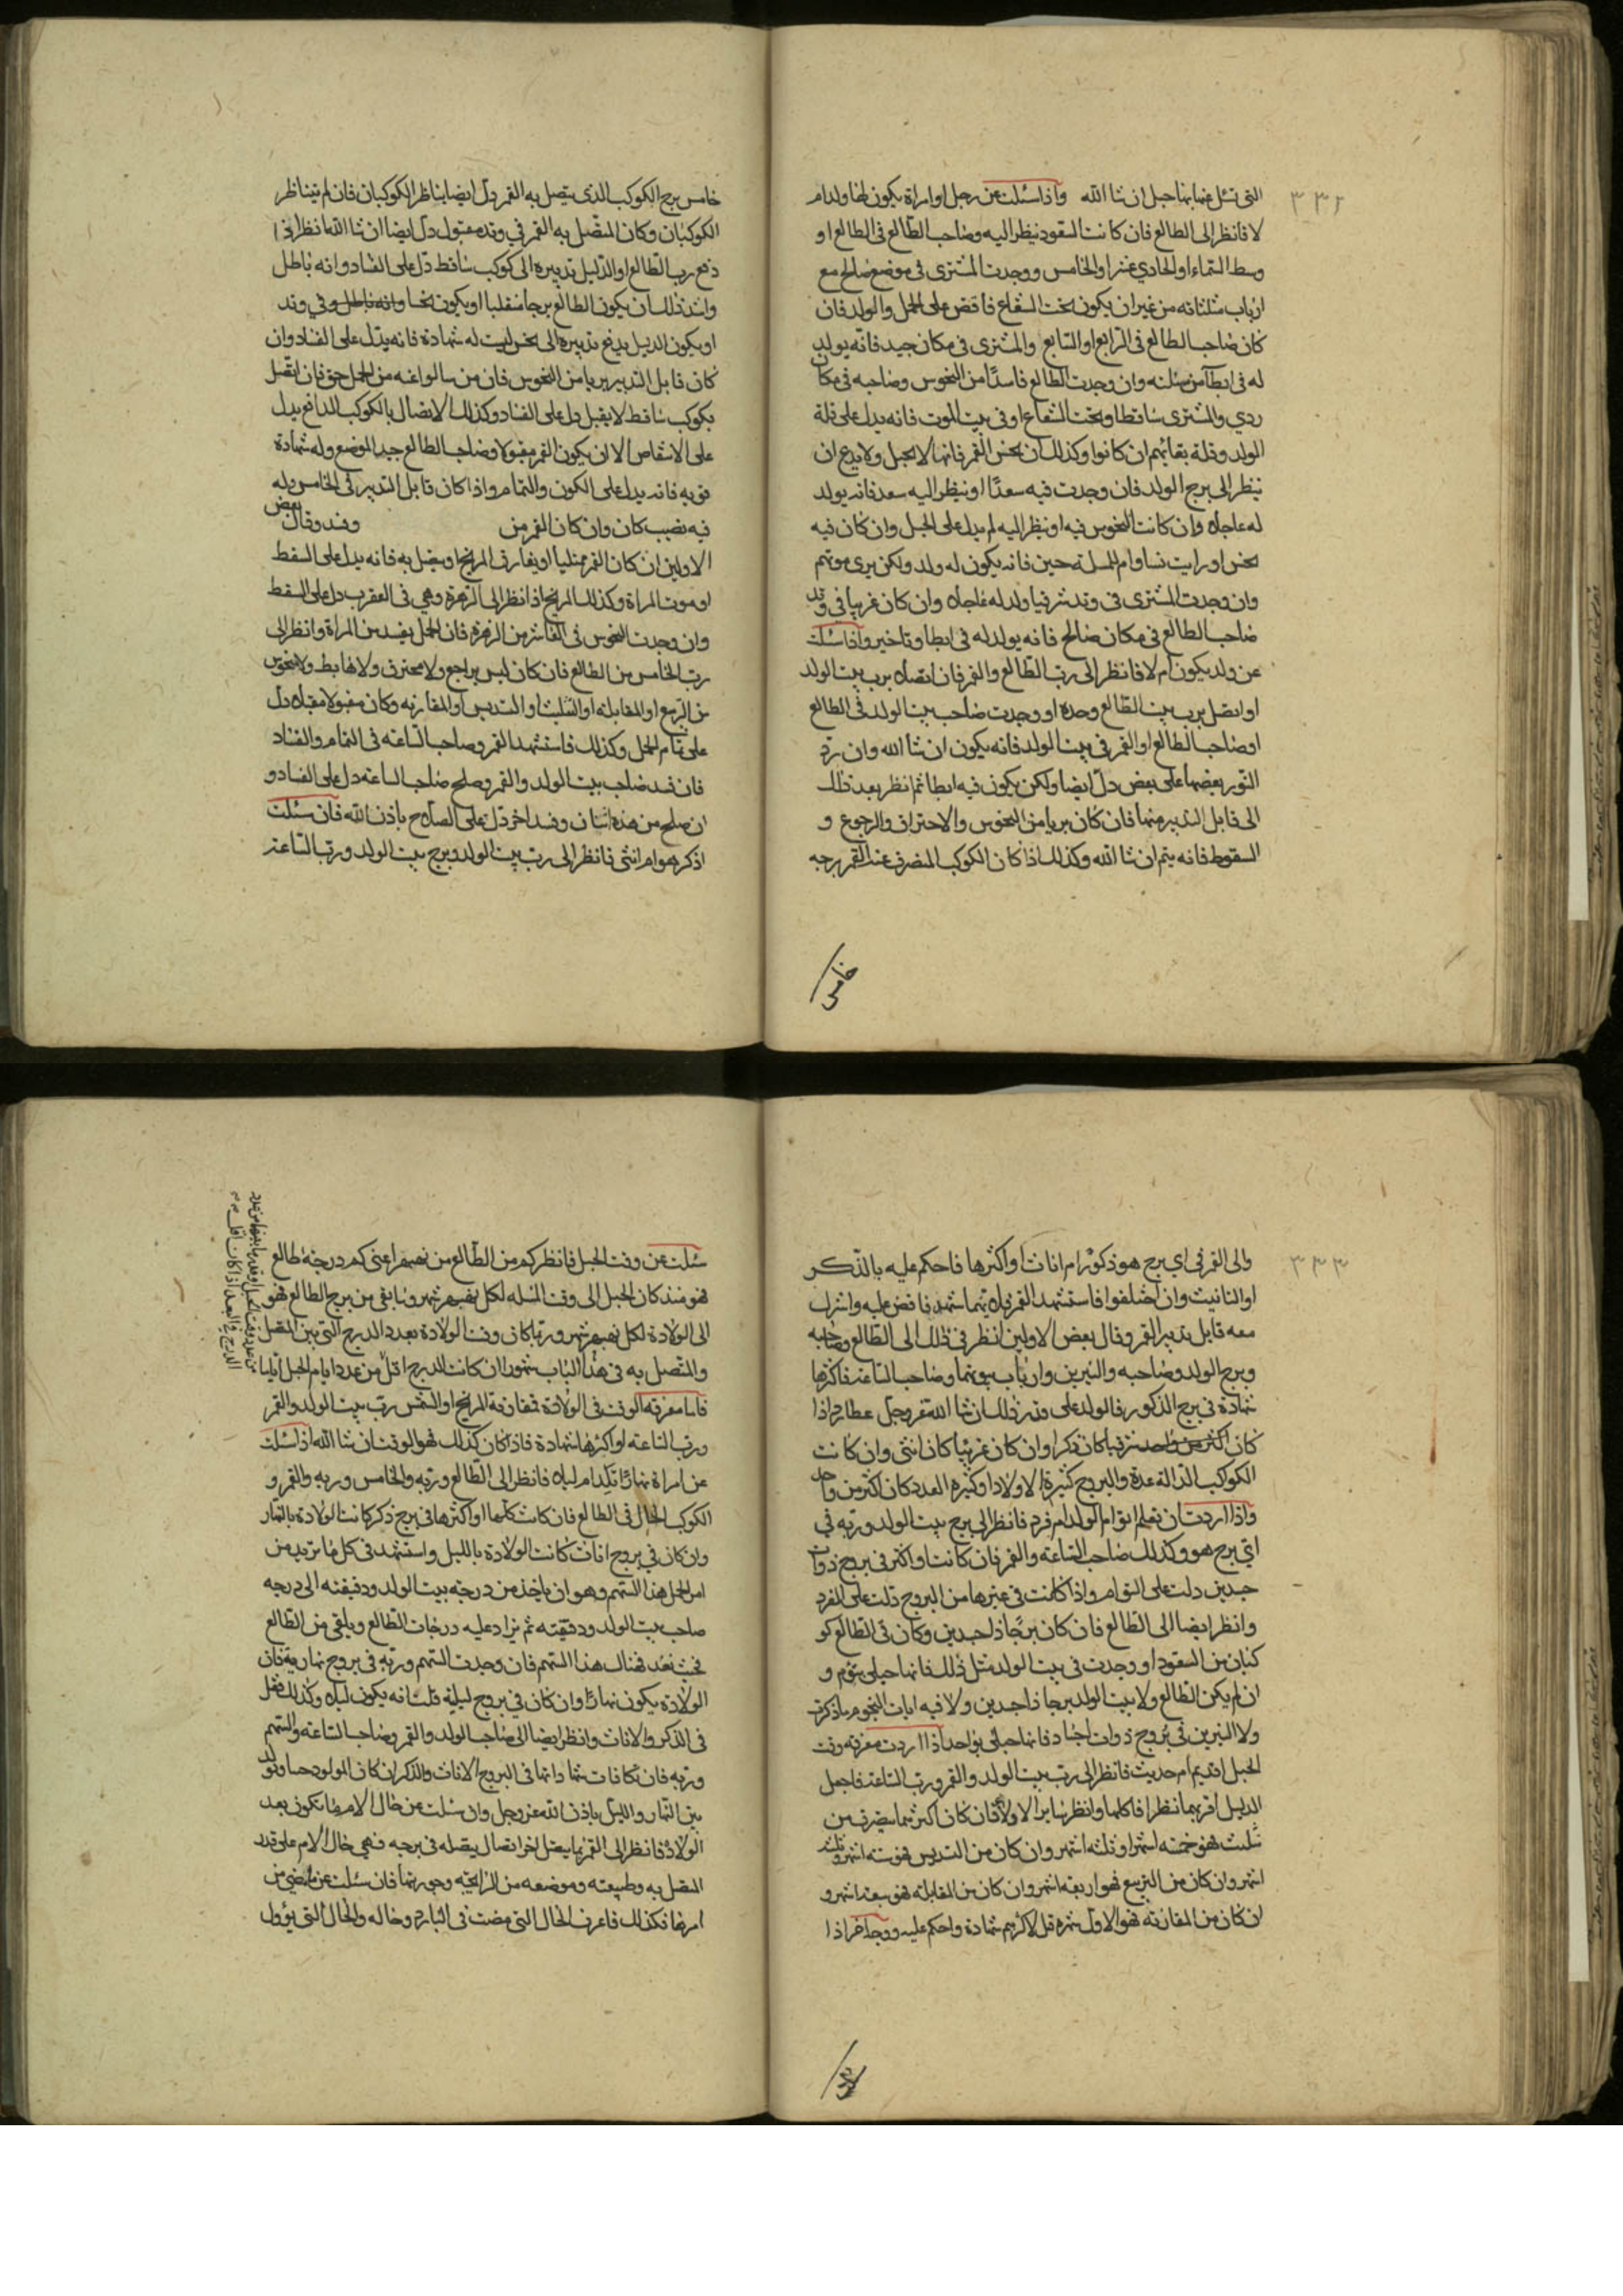 ٣٣٢
التى تسئل عنها بها حبل ان شا الله واذا سئلت عن رجل او امراة يكون لها ولد ام
لا فانظر الى الطالع فان كانت السعود ينظر اليه وصاحب الطالع فى الطالع او
وسط السماء او الحادي عشر او الخامس ووجدت المشترى فى موضع صالح مع
ارباب مثلثاته من غير ان يكون تحت الشعاع فاقض على الحمل والولد فان
كان صاحب الطالع فى الرابع او السابع والمشترى فى مكان جيد فانه يولد
له فى ابطآ من سئلته وان وجدت الطالع فاسدًا من النحوس وصاحبه فى مكان
ردي والمشترى ساقطا وتحت الشعاع او فى بيت الموت فانه يدل على قلة
الولد وقلة بقائهم ان كانوا وكذلك ان نحس القمر فانها لا تحبل ولا يدع ان
ينظر الى برج الولد فان وجدت فيه سعدًا او ينظر اليه سعد فانه يولد
له عاجلا وان كانت النحوس فيه او ينظر اليه لم يدل على الحبل وان كان فيه
نحس او رايت نساوام المسلة حين فانه يكون له ولد ولكن يرى موتهم
وان وجدت المشترى فى وتد شرقيا ولد له عاجلا وان كان غربيا فى وتد
صاحب الطالع فى مكان صالح فانه يولد له فى ابطا وتاخير واذا سئلت
عن ولد يكون ام لا فانظر الى رب الطالع والقمر فان اتصلا برب بيت الولد
او اتصل برب بيت الطالع وحده او وجدت صاحب بيت الولد فى الطالع
او صاحب الطالع او القمر فى بيت الولد فانه يكون ان شا الله وان ردّ
النور بعضها على بعض دلّ ايضا ولكن يكون فيه ابطا ثم انظر بعد ذلك
الى قابل التدبير منهما فان كان بريا من النحوس والاحتراق والرجوع و
السقوط فانه يتم ان شا الله وكذلك اذا كان الكوكب المنصرف عنه القمر برجه
خامس
خامس برج الكوكب الذى يتصل به القمر دلّ ايضا يناظر الكوكبان فان لم يتناظر
الكوكبان وكان المتصل به القمر في وتد مقبول دلّ ايضا ان شا الله انظر اذا
دفع رب الطالع او الدليل تدبيره الى كوكب ساقط دلّ على الفساد وانه باطل
واشد ذلك ان يكون الطالع برجا منقلبا او يكون نحسا وانه باطل وفي وتد
او يكون الدليل يدفع تدبيره الى نحس ليست له شهادة فانه يدل على الفساد وان
كان قابل التدبير بريا من النحوس فان من سالوا عنه من الحمل حق فان اتصل
بكوكب ساقط لا يقبل دل على الفساد وكذلك الاتصال بالكوكب الدافع يدل
على الانتقاص الا ان يكون القمر مقبولا وصاحب الطالع جيد الموضع وله شهادة
قويه فانه يدل على الكون والتمام واذا كان قابل التدبير فى الخامس وله
فيه نصيب كان وان كان القمر من وفسد وقال بعض
الاولين ان كان القمر ممتليا او يفارق المريخ او يتصل به فانه يدل على السقط
او موت المراة وكذلك المريخ اذا نظر الى الزهرة وهي فى العقرب دل على السقط
وان وجدت النحوس فى العاشر من الزهرة فان الحمل يفسد من المراة وانظر الى
رب الخامس من الطالع فان كان ليس براجع ولا محترق ولا هابط ولا منحوس
من الربع او المقابلة او التثليث او التسديس او المقارنه وكان مقبولا مقبلا دل
على تمام الحمل وكذلك فاستشهد القمر وصاحب الساعه فى التمام والفساد
فان فسد صاحب بيت الولد والقمر وصلح صاحب الساعه دل على الفساد و
ان صلح من هذه اثنان وفسد اخر دلّ على الصلاح باذن الله فان سئلت
اذكر هو ام انثى فانظر الى رب بيت الولد وبرج بيت الولد ورب الساعة
٣٣٣
والى القمر في اي برج هو ذكوراً ام اناثا واكثرها فاحكم عليه بالذكر
او التانيث وان اختلفوا فاستشهد القمر فبلا تهما شهد فاقض عليه واشرك
معه قابل تدبير القمر وقال بعض الاولين انظر فى ذلك الى الطالع وصاحبه
وبرج الولد وصاحبه والنيرين وارباب بيوتهما وصاحب الساعة فاكثرها
شهادة فى برج الذكور فالولد على قدر ذلك ان شا الله عز وجلّ عطارد اذا
كان اكثر من واحد شرقيا كان ذكرا وان كان غربيا كان انثى وان كانت
الكواكب الدالة عدة والبروج كثيرة الاولاد او كثيره العدد كان اكثر من واحد
واذا اردت ان تعلم اتوام الولد ام فرد فانظر الى برج بيت الولد وربه فى
ايّ برج هو وكذلك صاحب الساعة والقمر فان كانت او اكثر فى بروج ذوات
جسدين دلت على التوام واذا كانت فى غيرها من البروج دلت على الفرد
وانظر ايضا الى الطالع فان كان برجًا ذا جسدين وكان فى الطالع كو
كبان من السعود او وجدت فى بيت الولد مثل ذلك فانها حبلى بتوم و
ان لم يكن الطالع ولا بيت الولد برجا ذا جسدين ولا فيه ايات النجوم ما ذكرت
ولا النيرين فى بروج ذوات اجساد فانها حبلى بواحد اذا اردت معرفه وقت
الحبل اقديم ام حديث فانظر الى رب بيت الولد والقمر ورب الساعة فاجعل
الدليل اقربهما نظرا فاكلها وانظر سابر الاولاد فان كان اكثرهما ينصرف من
تثليث فهو خمسه اشهر او ثلثه اشهر وان كان من التسديس فهو سته اشهر وثلث
اشهر وان كان من التربيع فهو اربعه اشهر وان كان من المقابلة فهو سبعة اشهر و
ان كان من المقارنه فهو الاول شهره قل لاكثرهم شهادة واحكم عليه ووجه اخر اذا
سئلت عن وقت الحبل فانظر كم من الطالع من نهبهر اعنى كم درجة طالع
فهو منذ كان الحبل الى وقت المسله لكل نهبهر شهر وما بقى من برج الطالع فهو
الى الولادة لكل نهبهر شهر وربما كان وقت الولادة بعدد الدرج التى بين المتصل
والمتصل به فى هذا الباب شهورا ان كانت الدرج اقل من عدد ايام الحبل ايّاما
فاما معرفة الوقت فى الولادة فمقارنة المريخ او الشمس رب بيت الولد والقمر
ورب الساعة او اكثرها شهادة فاذا كان كذلك فهو الوقت ان شا الله اذ سئلت
عن امراة نهارًا تلد ام ليلا فانظر الى الطالع وربه والخامس وربه والقمر و
الكوكب الحال فى الطالع فان كانت كلها او اكثرها فى برج ذكر كانت الولادة بالنهار
وان كان في بروج اناث كانت الولادة بالليل واستشهد فى كل ما تريد من
امر الحمل هذا السهم وهو ان ياخذ من درجة بيت الولد ودقيقته الى درجه
صاحب بيت الولد ودقيقته ثم تزاد عليه درجات الطالع ويلقى من الطالع
فحيث نفد فهناك هذا السهم فان وجدت السهم وربه فى بروج نهارية فان
الولادة يكون نهارًا وان كان في بروج ليلية قلت انه يكون ليلا وكذلك فقل
فى الذكر والاناث وانظر ايضا الى صاحب الولد والقمر وصاحب الساعه والسهم
وربه فان تكافات شهاداتها فى البروج الاناث والذكران كان المولود حيا وولد
بين النهار والليل باذن الله عز وجل وان سئلت عن حال الام ما تكون بعد
الولادة فانظر الى القمر بما يتصل اخر اتصال يتصله فى برجه فهي حال الام على قدر
المتصل به وطبيعته وموضعه من الزايجة وجوهرتها فان سئلت عن ما مضي من
امرها فكذلك فاعرف الحال التى مضت فى الباب وحاله والحال التى يؤول